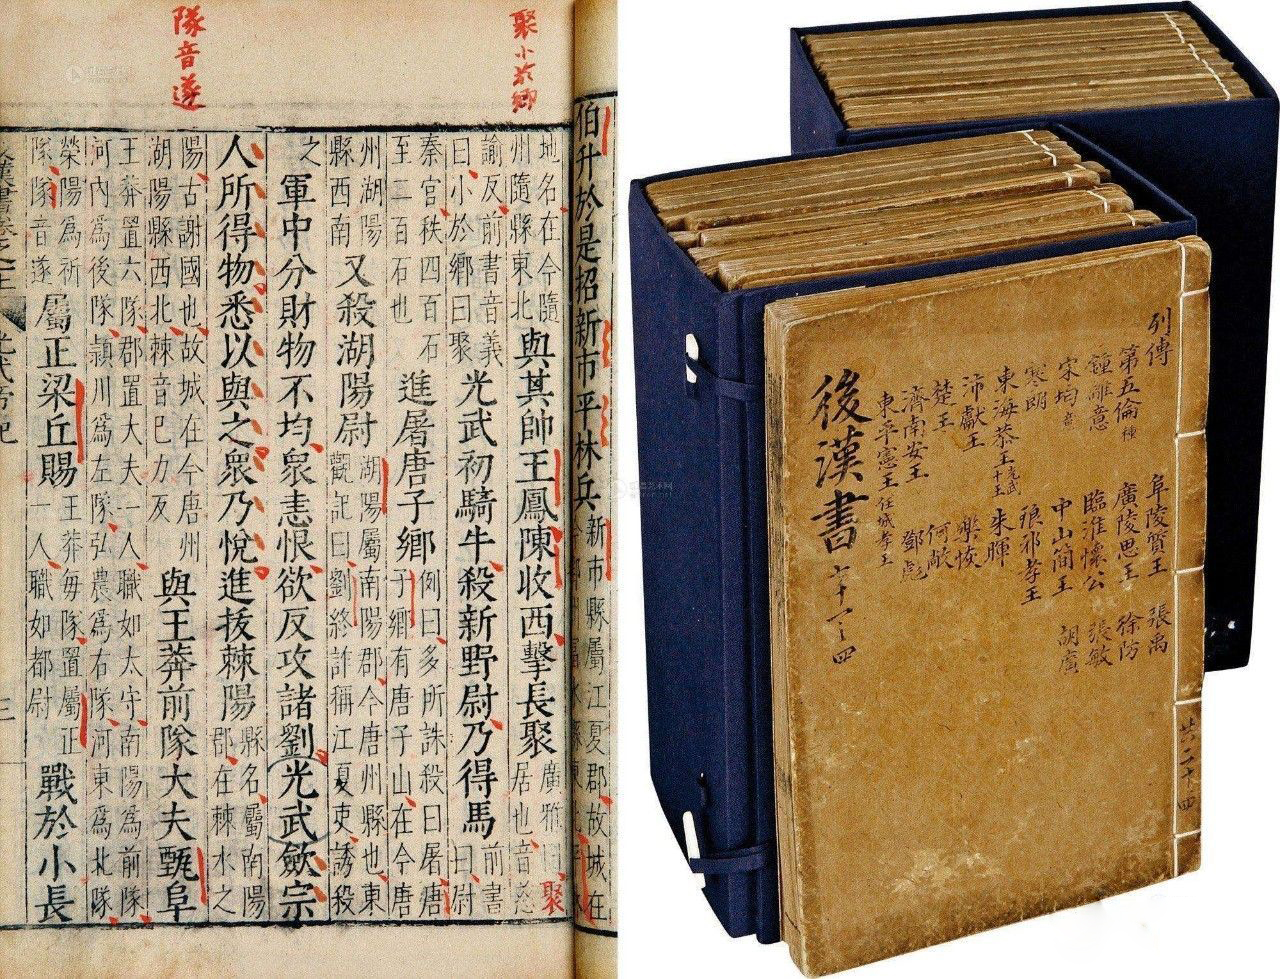 聚小於鄉
隊音遂
伯升於是招新市平林兵新市縣屬江夏郡故城在
地名在今隨州隨縣東北與其帥王鳳陳牧西擊長聚廣雅曰聚居也音慈
諭反前書音義曰小於鄉曰聚光武初騎牛殺新野尉乃得馬前書曰尉
秦官秩四百石至二百石也進屠唐子鄉例曰多所誅殺曰屠唐子鄉有唐子山在今唐
州湖陽縣西南又殺湖陽尉湖陽屬南陽郡今唐州縣也東觀記曰劉終詐稱江夏吏誘殺
之軍中分財物不均衆恚恨欲反攻諸劉光武斂宗
人所得物悉以與之衆乃悅進拔棘陽縣名屬南陽郡在棘水之
陽古謝國也故城在今唐州湖陽縣西北棘音己力反與王莽前隊大夫甄阜
王莽置六隊郡置大夫一人職如太守南陽為前隊河內為後隊潁川為左隊弘農為右隊河東為北隊
滎陽為祈隊隊音遂屬正梁丘賜王莽每隊置屬正一人職如都尉戰於小長
列傳
第五倫種
鍾離意
宋均意
寒朗
東海恭王光武十王
沛獻王
楚王
濟南安王
東平憲王任城孝王
阜陵質王
廣陵思王
臨淮懷公
中山簡王
琅邪孝王
朱暉
樂恢
何敞
鄧彪
張禹
徐防
張敏
胡廣
後漢書
共二十四